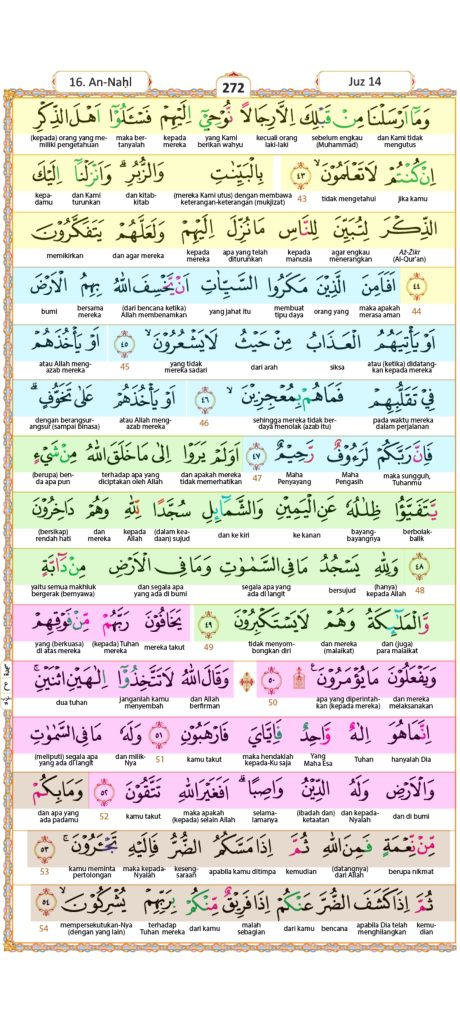 16. An-Naḥl
272
Juz 14
وَمَآ اَرْسَلْنَا مِنْ قَبْلِكَ اِلَّا رِجَالًا نُّوْحِيْٓ اِلَيْهِمْ فَسْـَٔلُوْٓا اَهْلَ الذِّكْرِ
dan Kami tidak mengutus sebelum engkau (Muhammad) kecuali orang laki-laki yang Kami berikan wahyu kepada mereka maka ber-tanyalah (kepada) orang yang me-miliki pengetahuan
اِنْ كُنْتُمْ لَا تَعْلَمُوْنَۙ ٤٣ بِالْبَيِّنٰتِ وَالزُّبُرِۗ وَاَنْزَلْنَآ اِلَيْكَ
jika kamu tidak mengetahui 43 (mereka Kami utus) dengan membawa keterangan-keterangan (mukjizat) dan kitab-kitab dan Kami turunkan kepa-damu
الذِّكْرَ لِتُبَيِّنَ لِلنَّاسِ مَا نُزِّلَ اِلَيْهِمْ وَلَعَلَّهُمْ يَتَفَكَّرُوْنَ
Aż-Żikr (Al-Qur'an) agar engkau menerangkan kepada manusia apa yang telah diturunkan kepada mereka dan agar mereka memikirkan
٤٤ اَفَاَمِنَ الَّذِيْنَ مَكَرُوا السَّيِّاٰتِ اَنْ يَّخْسِفَ اللّٰهُ بِهِمُ الْاَرْضَ
44 maka apakah merasa aman orang yang membuat tipu daya yang jahat itu (dari bencana ketika) Allah membenamkan bersama mereka bumi
اَوْ يَأْتِيَهُمُ الْعَذَابُ مِنْ حَيْثُ لَا يَشْعُرُوْنَۙ ٤٥ اَوْ يَأْخُذَهُمْ
atau (ketika) didatang-kan kepada mereka siksa dari arah yang tidak mereka sadari 45 atau Allah meng-azab mereka
فِيْ تَقَلُّبِهِمْ فَمَا هُمْ بِمُعْجِزِيْنَۙ ٤٦ اَوْ يَأْخُذَهُمْ عَلٰى تَخَوُّفٍۗ
pada waktu mereka dalam perjalanan sehingga mereka tidak ber-daya menolak (azab itu) 46 atau Allah meng-azab mereka dengan berangsur-angsur (sampai binasa)
فَاِنَّ رَبَّكُمْ لَرَءُوْفٌ رَّحِيْمٌ ٤٧ اَوَلَمْ يَرَوْا اِلٰى مَا خَلَقَ اللّٰهُ مِنْ شَيْءٍ
maka sungguh, Tuhanmu Maha Pengasih Maha Penyayang 47 dan apakah mereka tidak memerhatikan terhadap apa yang diciptakan oleh Allah (berupa) ben-da apa pun
يَّتَفَيَّؤُا ظِلٰلُهٗ عَنِ الْيَمِيْنِ وَالشَّمَاۤىِٕلِ سُجَّدًا لِّلّٰهِ وَهُمْ دَاخِرُوْنَ
berbolak-balik bayang-bayangnya ke kanan dan ke kiri (dalam kea-daan) sujud kepada Allah dan mereka (bersikap) rendah hati
٤٨ وَلِلّٰهِ يَسْجُدُ مَا فِى السَّمٰوٰتِ وَمَا فِى الْاَرْضِ مِنْ دَاۤبَّةٍ
48 (hanya) kepada Allah bersujud segala apa yang ada di langit dan segala apa yang ada di bumi yaitu semua makhluk bergerak (bernyawa)
وَّالْمَلٰۤىِٕكَةُ وَهُمْ لَا يَسْتَكْبِرُوْنَ ٤٩ يَخَافُوْنَ رَبَّهُمْ مِّنْ فَوْقِهِمْ
dan (juga) para malaikat dan mereka (malaikat) tidak menyom-bongkan diri 49 mereka takut (kepada) Tuhan mereka yang (berkuasa) di atas mereka
وَيَفْعَلُوْنَ مَا يُؤْمَرُوْنَ ٥٠ وَقَالَ اللّٰهُ لَا تَتَّخِذُوْٓا اِلٰهَيْنِ اثْنَيْنِۚ
dan mereka melaksanakan apa yang diperintah-kan (kepada mereka) 50 dan Allah berfirman janganlah kamu menyembah dua tuhan
اِنَّمَا هُوَ اِلٰهٌ وَّاحِدٌ فَاِيَّايَ فَارْهَبُوْنِ ٥١ وَلَهٗ مَا فِى السَّمٰوٰتِ
hanyalah Dia Tuhan Yang Maha Esa maka hendaklah kepada-Ku saja kamu takut 51 dan milik-Nya (meliputi) segala apa yang ada di langit
وَالْاَرْضِ وَلَهُ الدِّيْنُ وَاصِبًاۗ اَفَغَيْرَ اللّٰهِ تَتَّقُوْنَ ٥٢ وَمَا بِكُمْ
dan di bumi dan kepada-Nyalah (ibadah dan) ketaatan selama-lamanya maka apakah (kepada) selain Allah kamu takut 52 dan apa yang ada padamu
مِّنْ نِّعْمَةٍ فَمِنَ اللّٰهِ ثُمَّ اِذَا مَسَّكُمُ الضُّرُّ فَاِلَيْهِ تَجْـَٔرُوْنَۚ ٥٣
berupa nikmat (datangnya) dari Allah kemudian apabila kamu ditimpa keseng-saraan maka kepada-Nyalah kamu meminta pertolongan 53
ثُمَّ اِذَا كَشَفَ الضُّرَّ عَنْكُمْ اِذَا فَرِيْقٌ مِّنْكُمْ بِرَبِّهِمْ يُشْرِكُوْنَۙ ٥٤
kemu-dian apabila Dia telah menghilangkan bencana dari kamu malah sebagian dari kamu terhadap Tuhan mereka mempersekutukan-Nya (dengan yang lain) 54